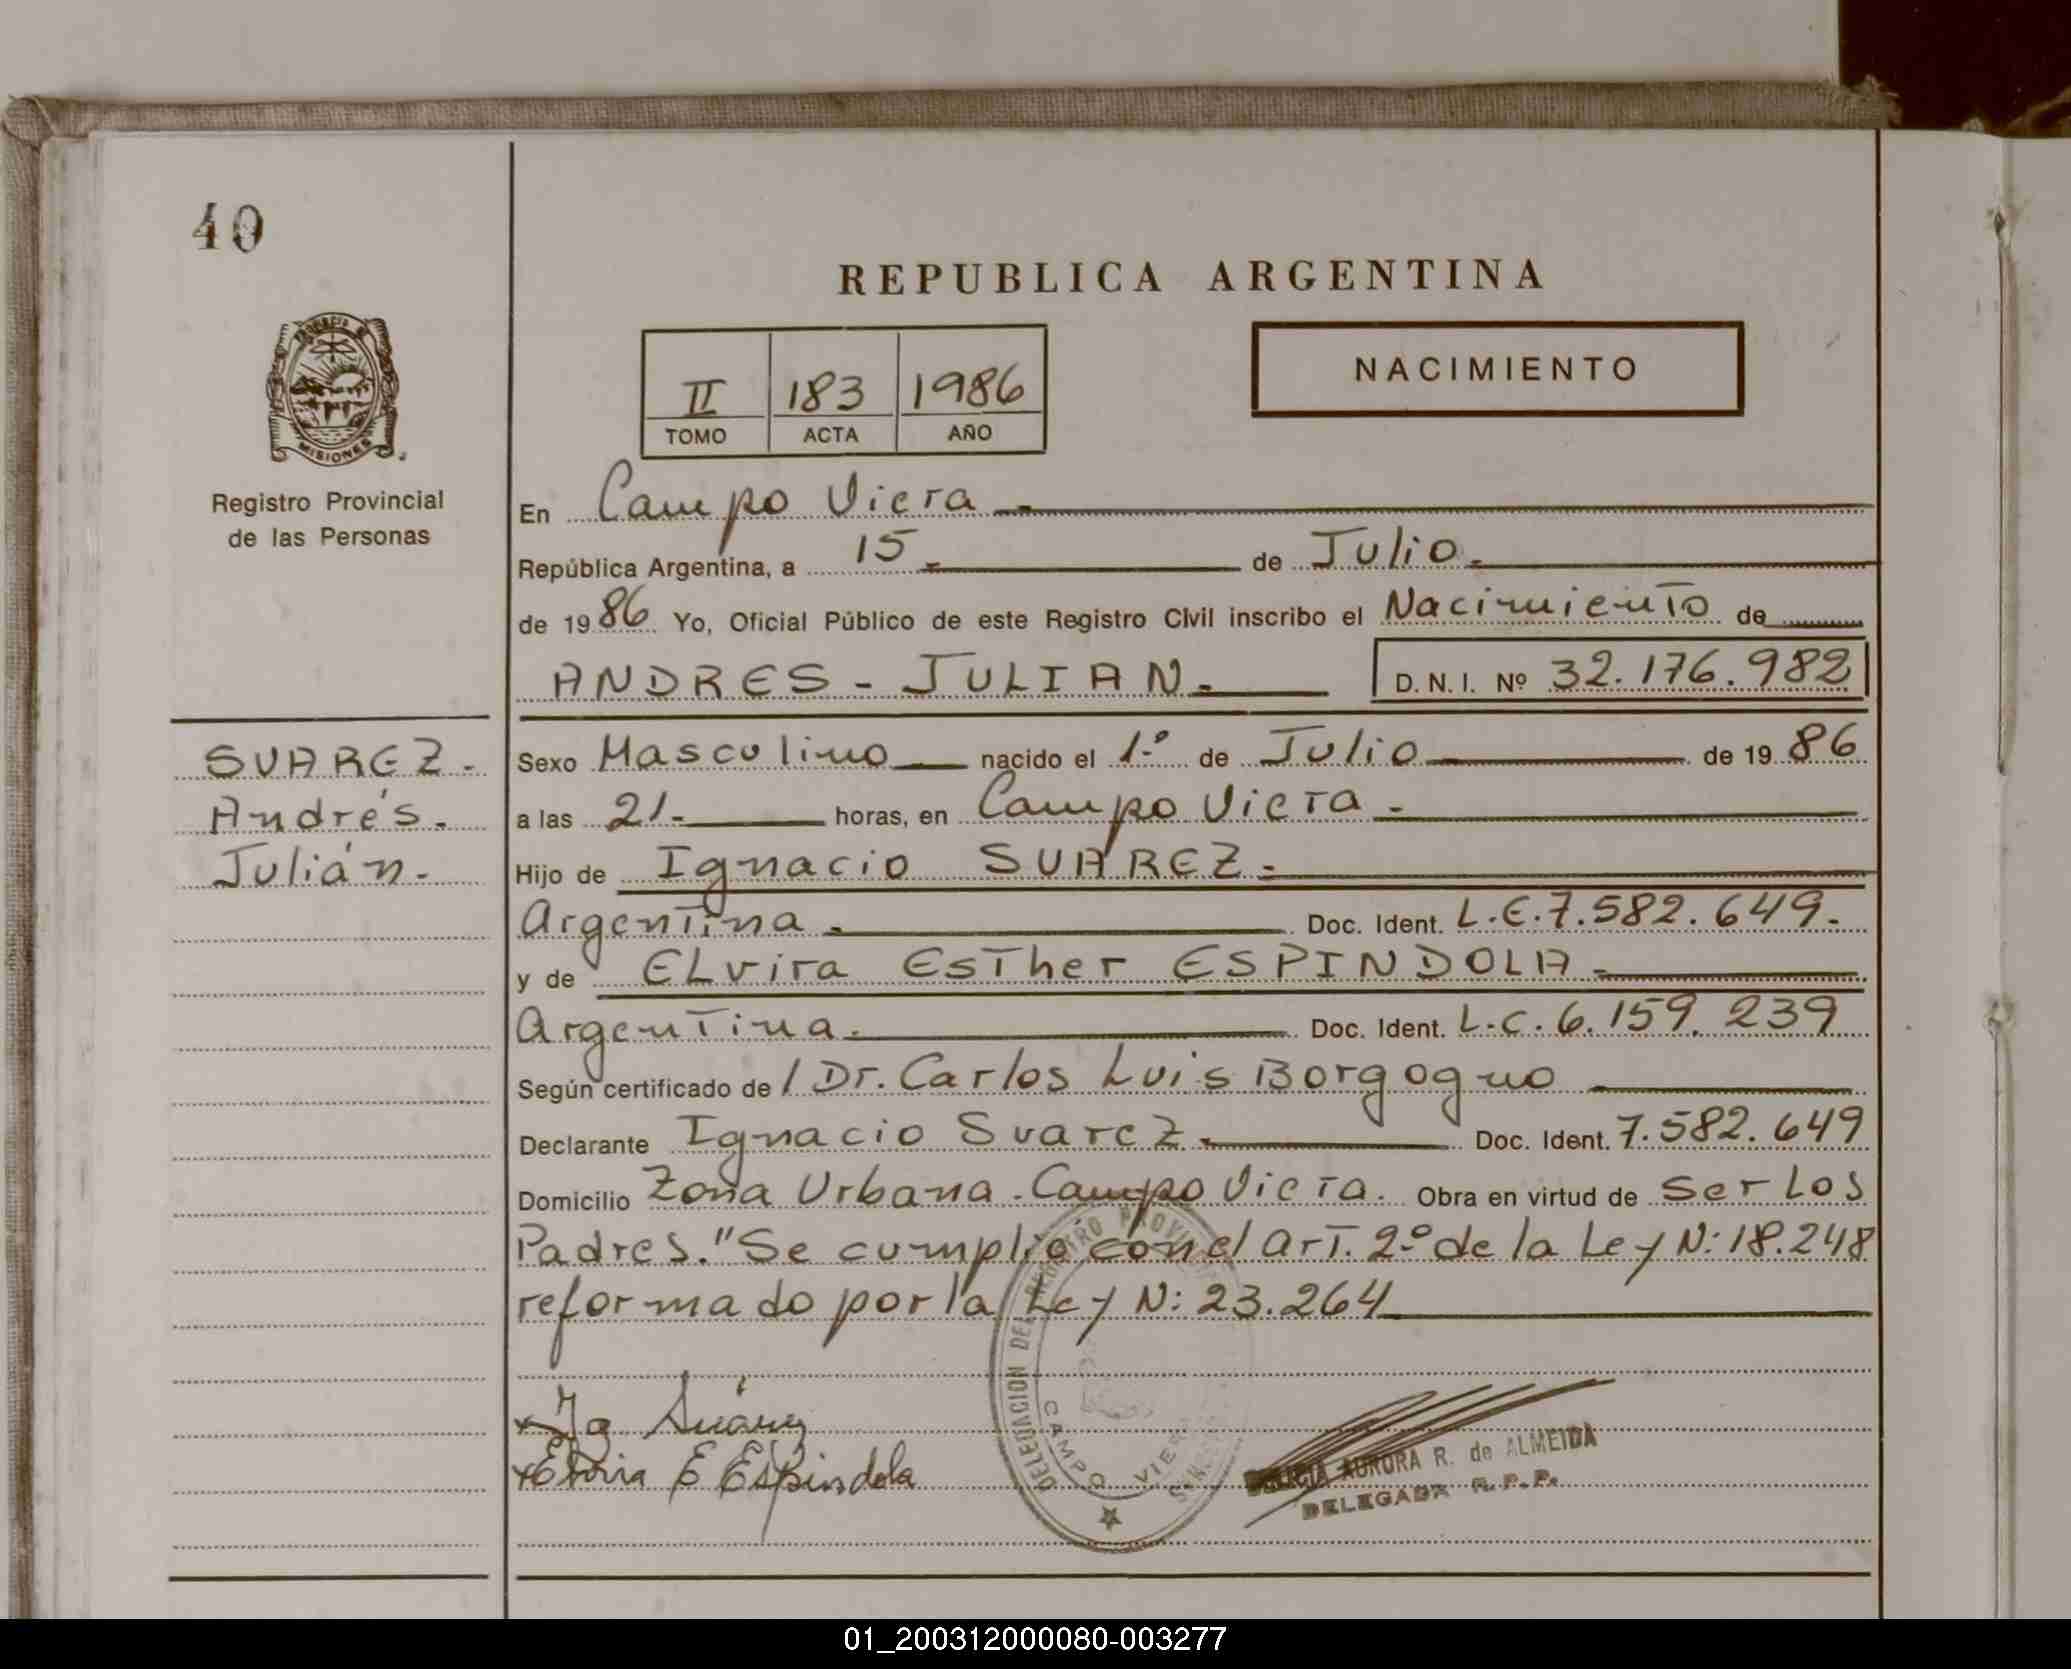 40
REPUBLICA ARGENTINA
PROVINCIA DE
MISIONES
Registro Provincial
de las Personas
II 183 1986
TOMO ACTA AÑO
NACIMIENTO
En Campo Viera.
República Argentina, a 15 de Julio.
de 1986 Yo, Oficial Público de este Registro Civil inscribo el Nacimiento de
ANDRES - JULIAN. D. N. I. Nº 32.176.982
SUAREZ.
Andrés.
Julián.
Sexo Masculino nacido el 1.º de Julio de 1986
a las 21. horas, en Campo Viera.
Hijo de Ignacio SUAREZ.
Argentina. Doc. Ident. L.E.7.582.649.
y de ELvira EsTher ESPINDOLA.
Argentina. Doc. Ident. L.C. 6.159.239
Según certificado de / Dr. Carlos Luis Borgogno
Declarante Ignacio Suarez. Doc. Ident. 7.582.649
Domicilio Zona Urbana. Campo Viera. Obra en virtud de ser Los
Padres."Se cumplió con el art. 2º de la Ley N: 18.248
reformado por la Ley N: 23.264
x Ig Suárez
x Elvira E Espindola
DELEGACION DEL REGISTRO PROVINCIAL
CAMPO VIERA
DELICIA AURORA R. de ALMEIDA
DELEGADA R.P.P.
01_200312000080-003277